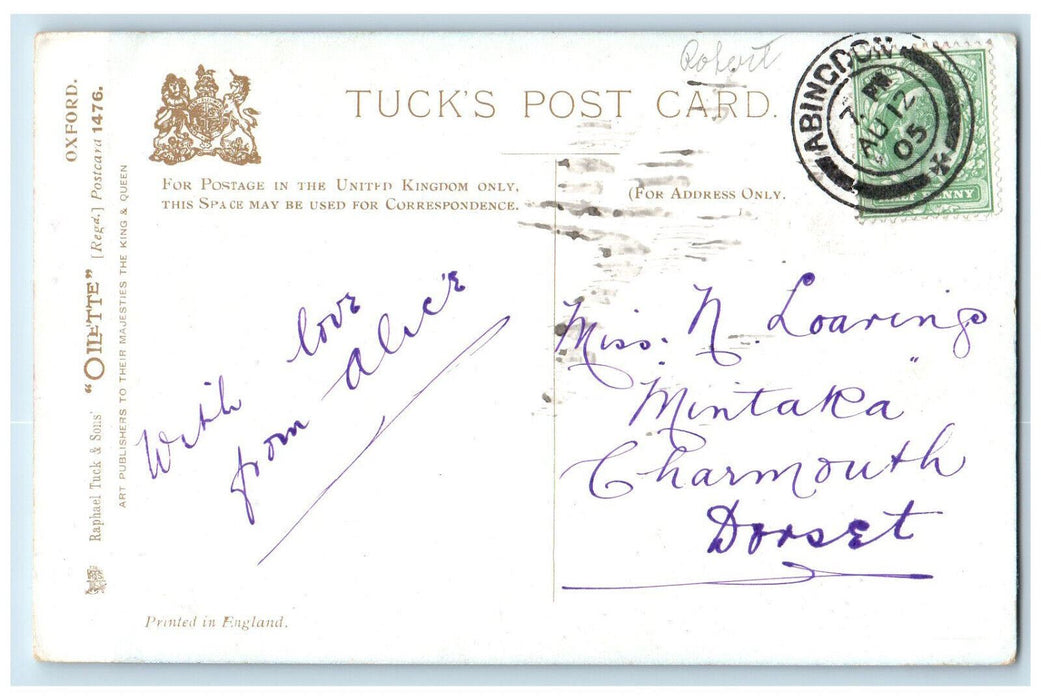 TUCK'S POST CARD.
ABINGDON
7. PM
AU 12
05
FOR POSTAGE IN THE UNITED KINGDOM ONLY,
THIS SPACE MAY BE USED FOR CORRESPONDENCE.
(FOR ADDRESS ONLY.
With love
from Alice
Miss. N. Loaring
"Mintaka"
Charmouth
Dorset
Printed in England.
OXFORD.
Raphael Tuck & Sons' "OILETTE" [Regd.] Postcard 1476.
ART PUBLISHERS TO THEIR MAJESTIES THE KING & QUEEN